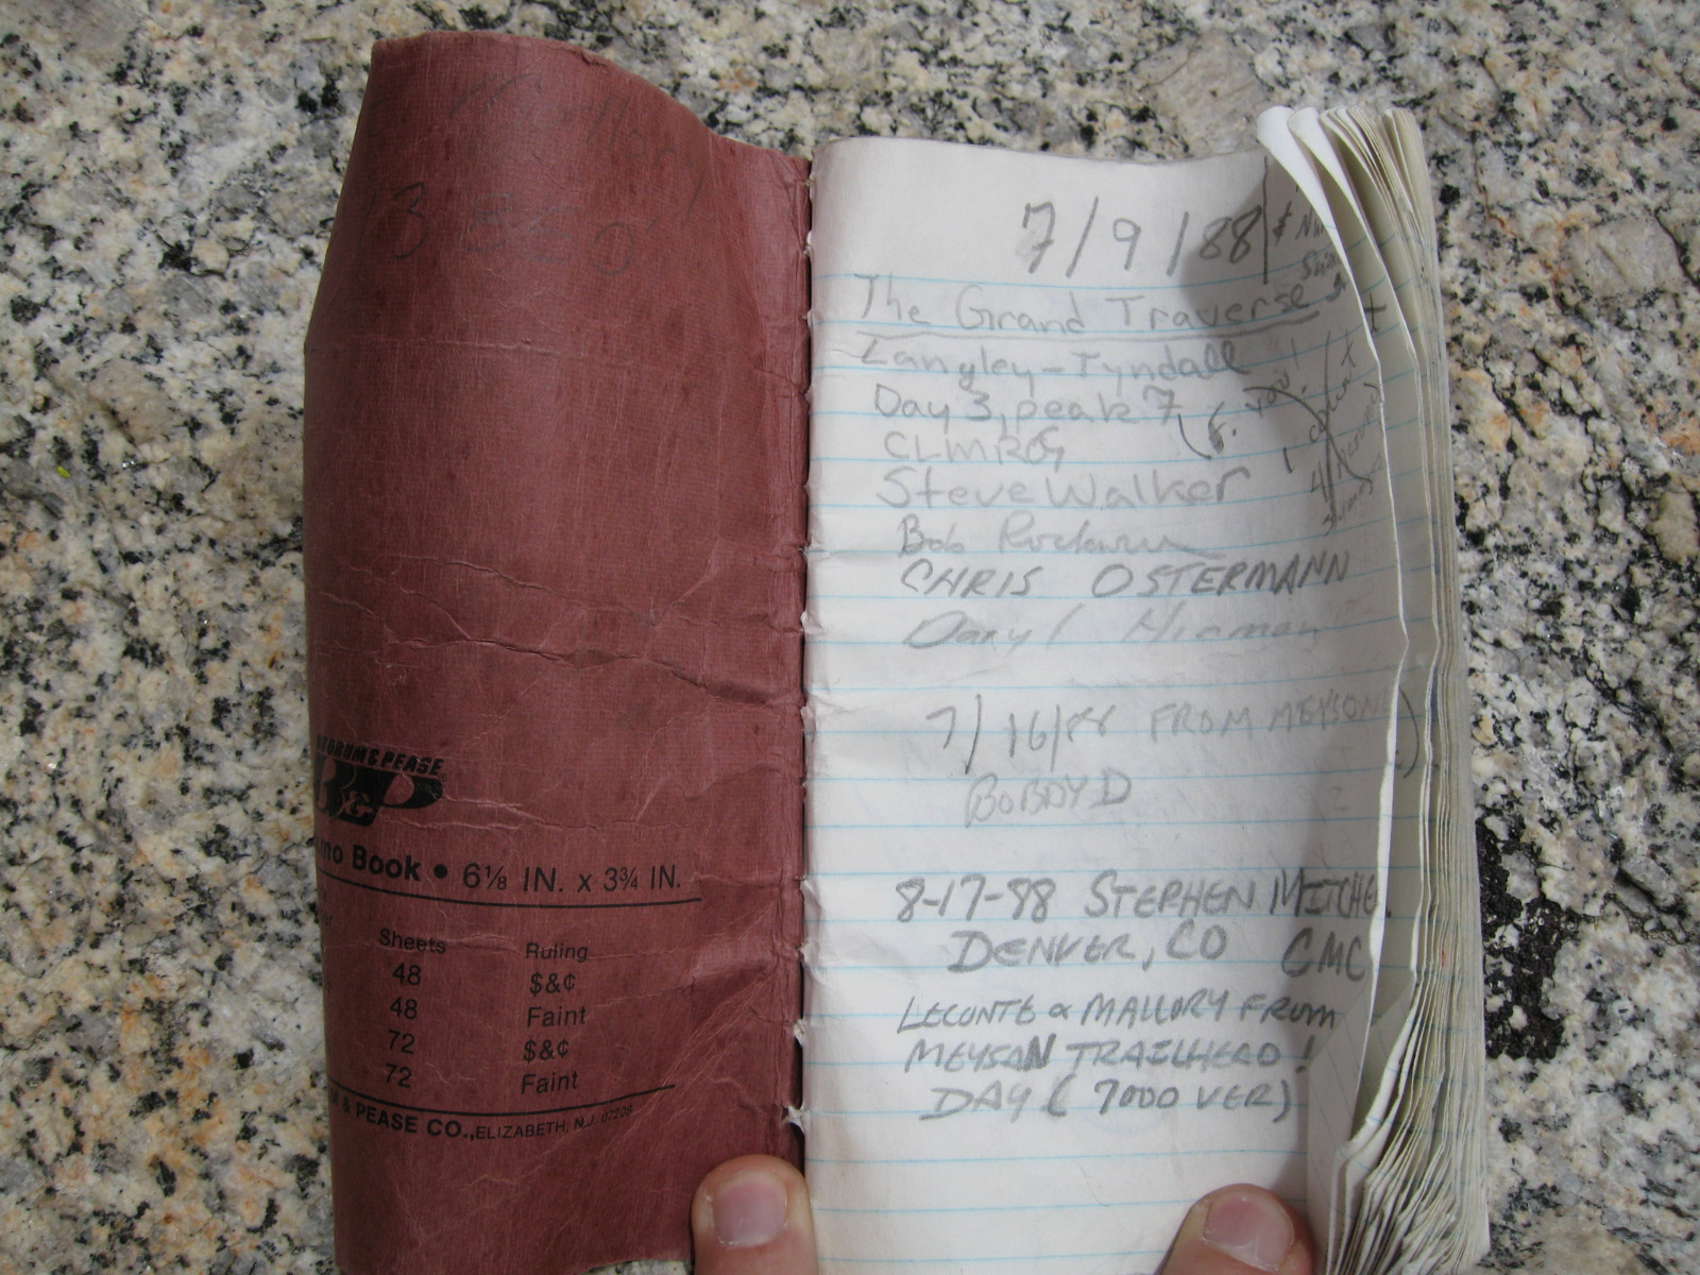 Mallory
13 850'
& PEASE
B&P
Book • 6⅛ IN. x 3¾ IN.
Sheets Ruling
48 $&¢
48 Faint
72 $&¢
72 Faint
& PEASE CO., ELIZABETH, N.J. 07206
7/9/88
The Grand Traverse
Langley-Tyndall
Day 3, peak 7
CLMRG
Steve Walker
Bob
CHRIS OSTERMANN
Daryl
7/16/88 FROM MEYSON
BOBBY D
8-17-88 STEPHEN
DENVER, CO CMC
LECONTE & MALLORY FROM
MEYSAN TRAILHEAD!
DAY (7000 VER)